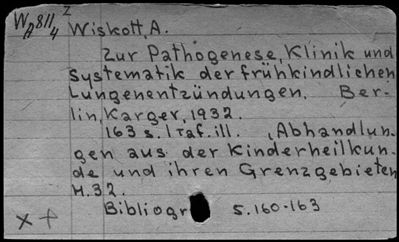 W 811 2
A 4
Wiskott, A.
Zur Pathogenese, Klinik und
Systematik der frühkindlichen
Lungenentzündungen. Ber-
lin, Karger, 1932.
163 s. 1 Taf. ill. (Abhandlun-
gen aus der Kinderheilkun-
de und ihren Grenzgebieten
H.32.
Bibliogr S.160-163